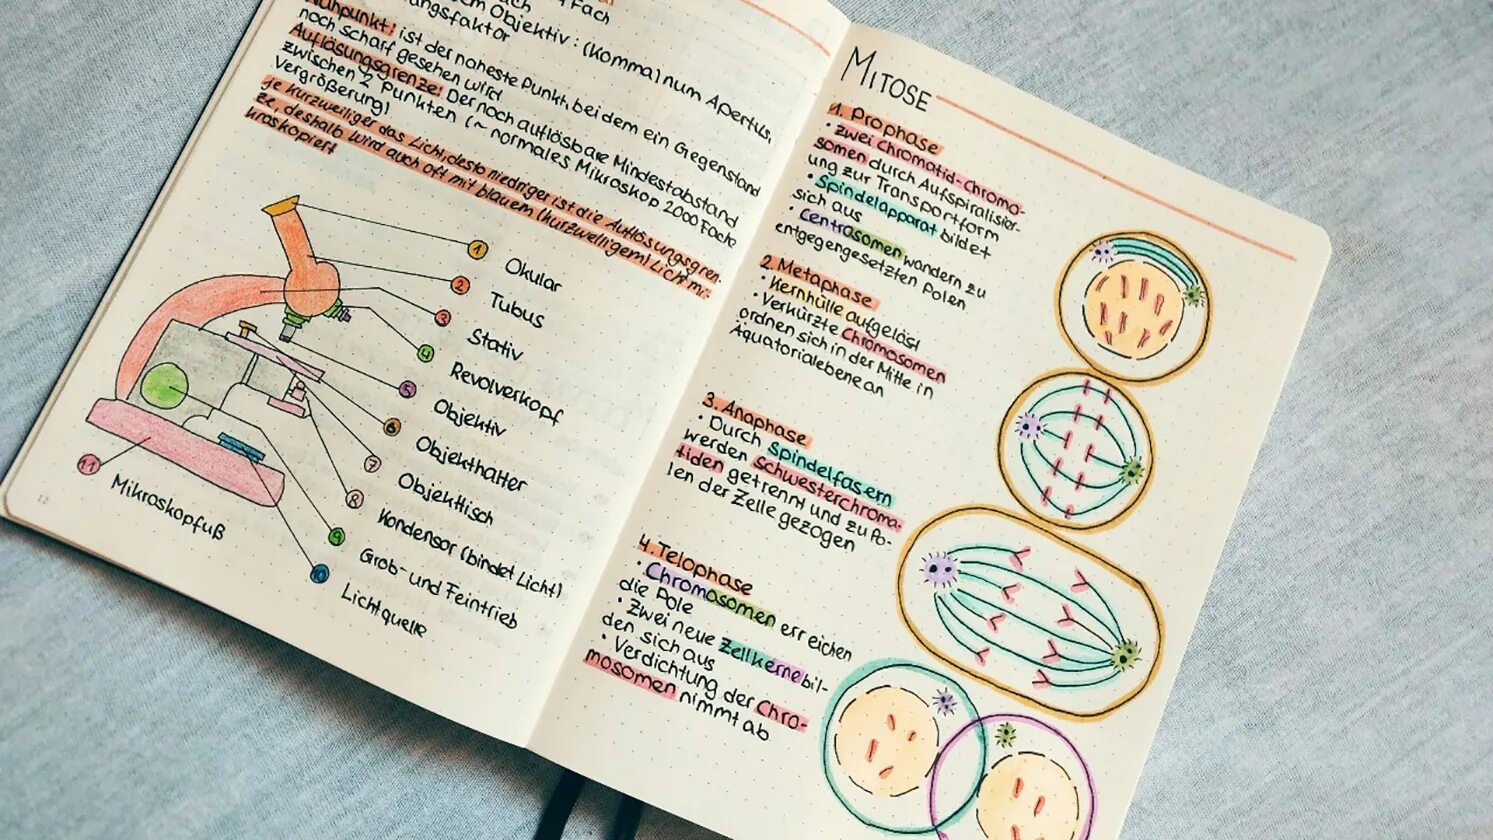 Fach
dem Objektiv: (Komma) num Apertur,
ungsfaktor
Nahpunkt: ist der naheste Punkt, bei dem ein Gegenstand
noch scharf gesehen wird
Auflösungsgrenze: Der noch auflösbare Mindestabstand
zwischen 2 Punkten (~ normales Mikroskop 2000 Fache
Vergrößerung)
je kurzweiliger das Licht, desto niedriger ist die Auflösungsgren-
ze, deshalb wird auch oft mit blauem (kurzwelligem) Licht mi-
kroskopiert
1 Okular
2 Tubus
3 Stativ
4 Revolverkopf
5 Objektiv
6 Objekthalter
7 Objekttisch
8 Kondensor (bindet Licht)
9 Grob- und Feintrieb
10 Lichtquelle
11 Mikroskopfuß
12
MITOSE
1. Prophase
• zwei Chromatid-Chromo-
somen durch Aufspiralisier-
ung zur Transportform
• Spindelapparat bildet
sich aus
• Centrosomen wandern zu
entgegengesetzten Polen
2. Metaphase
• Kernhülle aufgelöst
• Verkürzte Chromosomen
ordnen sich in der Mitte in
Äquatorialebene an
3. Anaphase
• Durch Spindelfasern
werden Schwesterchroma-
tiden getrennt und zu Po-
len der Zelle gezogen
4. Telophase
• Chromosomen erreichen
die Pole
• Zwei neue Zellkerne bil-
den sich aus
• Verdichtung der Chro-
mosomen nimmt ab